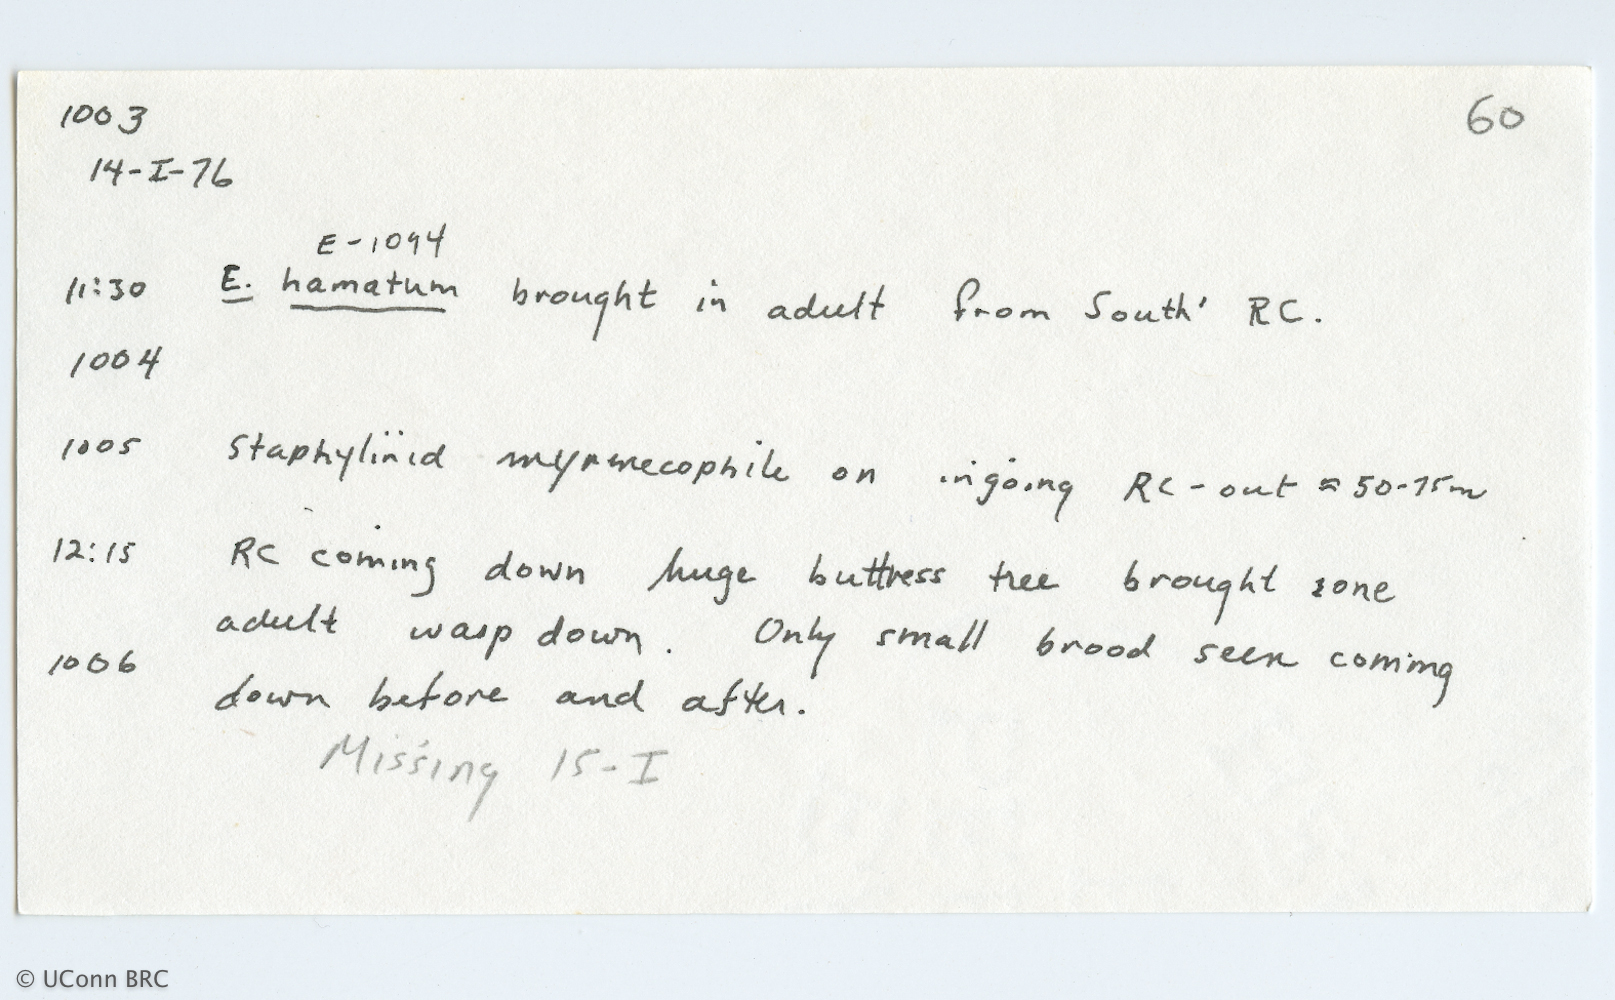 1003
60
14-I-76
E-1094
11:30 E. hamatum brought in adult from South' RC.
1004
1005 Staphylinid myrmecophile on ingoing RC - out ≈ 50-75m
12:15 RC coming down huge buttress tree brought one
adult wasp down. Only small brood seen coming
1006
down before and after.
Missing 15-I
© UConn BRC